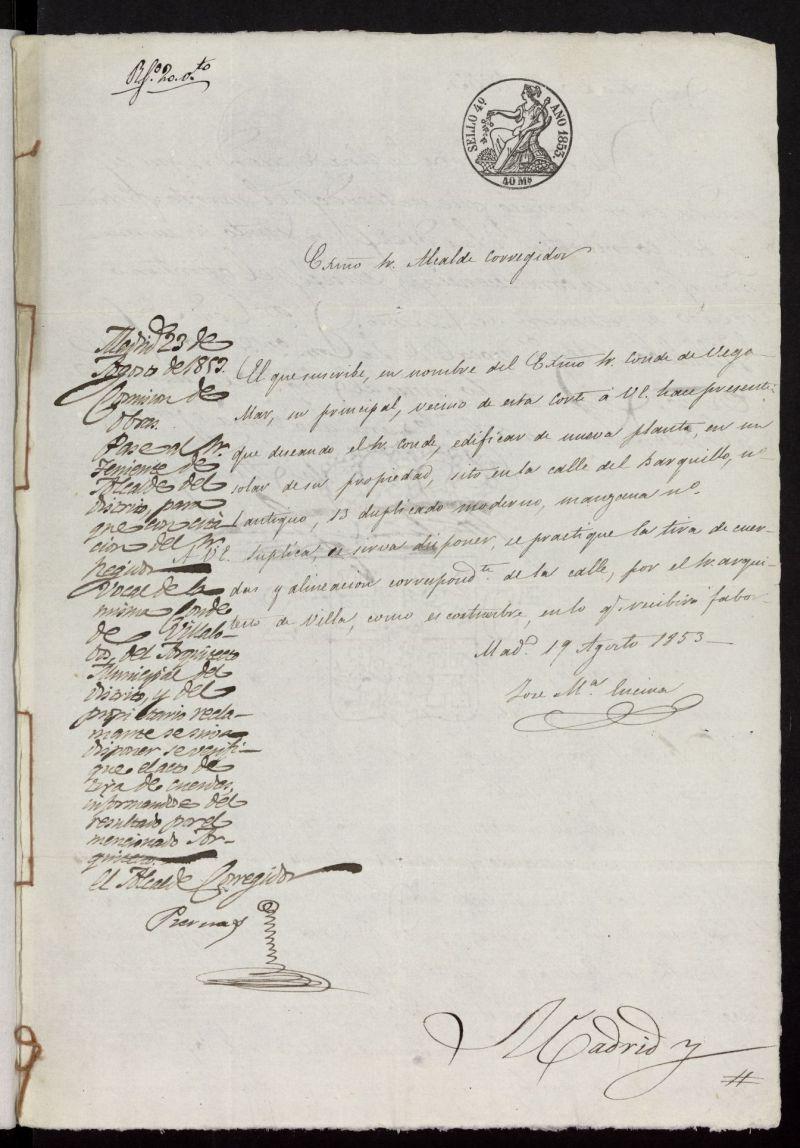 SELLO 4º AÑO 1853.
40 Ms
Exmo Sr. Alcalde Corregidor
Madrid 23 de
Agosto de 1853.
Comision de
Obras.
Pase al Sr.
Teniente de
Alcalde del
Distrito, para
que con cita
cion del Sr.
Regidor
Vocal de la
misma Conde
de Villalo-
bos, del Arquitecto
Municipal del
distrito, y del
propietario recla-
mante se sirva
disponer se verifi-
que el acto de
tira de cuerdas,
informandose del
resultado por el
mencionado Ar-
quitecto.
El Alcalde Corregidor
El que suscribe, en nombre del Exmo Sr. Conde de Vega-
Mar, su principal, vecino de esta corte á VE. hace presente
que deseando el Sr. Conde, edificar de nueva planta, en un
solar de su propiedad, sito en la calle del Barquillo, nº
1 antiguo, 13 duplicado moderno, manzana nº.
A VE. Suplica, se sirva disponer, se practique la tira de cuer-
das y alineacion correspondte. de la calle, por el Sr. arqui-
tecto de Villa, como es costumbre, en lo q. recibirá fabor-
Madd. 19 Agosto 1853-
Jose Ma. Encina
Madrid y